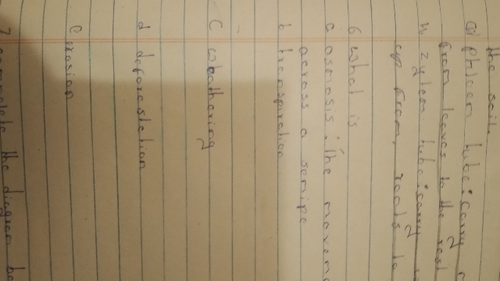 the soil.
a) phloem tube: carry
from leaves to the rest
b) zylem tube: carry
up from roots to
6 what is
a osmosis: The movem
across a semipe
b transpiration
C weathering
d deforestation
e rosion
7 complete the diagram be